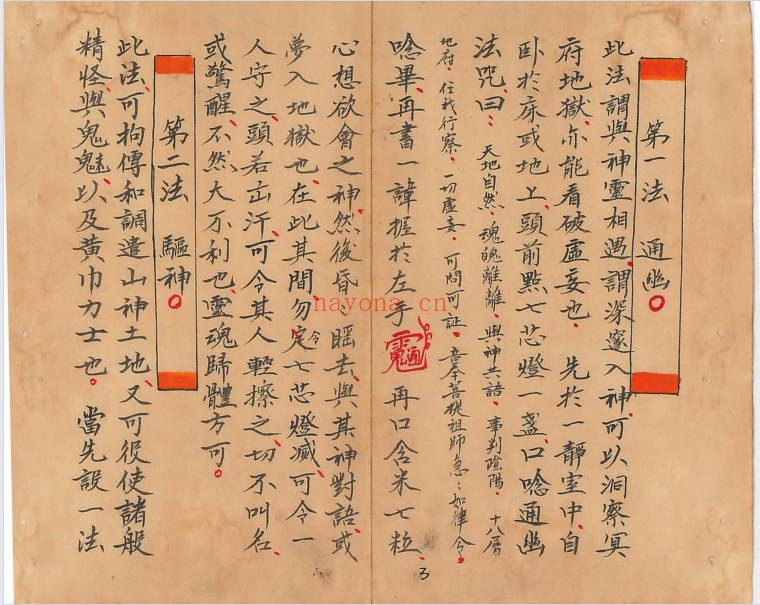 第一法 通幽
此法謂與神靈相遇謂深邃入神可以洞察冥
府地獄亦能看破虛妄也 先於一靜室中自
卧於床或地上頭前點七芯燈一盞口唸通幽
法咒曰：天地自然魂魄離離與神共語事判陰陽十八層
地府任我行察一切虛妄可問可証 吾奉菩提祖師急：如律令
唸畢再書一諱握於左手 再口含米七粒
心想欲會之神然後昏：睡去與其神對語或
夢入地獄也在此其間勿令七芯燈滅可令一
人守之頭若出汗可令其人輕擦之切不叫名
或驚醒不然大不利也靈魂歸體方可。
第二法 驅神
此法可拘傳和調遣山神土地又可役使諸般
精怪與鬼魅以及黄巾力士也。當先設一法
3
nayona.cn